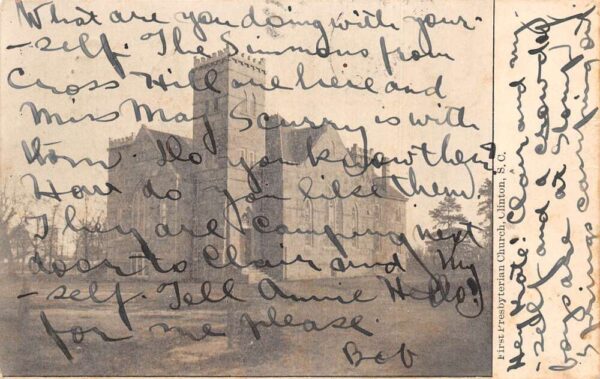 What are you doing with your-
-self. The Simmons from
Cross Hill are here and
Miss May Scurry is with
them. Do you know them?
How do you like them?
They are camping next
door to Clair and my
-self. Tell Annie Hello!
for me please.
Bob
First Presbyterian Church, Clinton, S. C.
Hey Kate! Clair and my-
-self and a crowd of
boys are at Stomp
Springs camping out